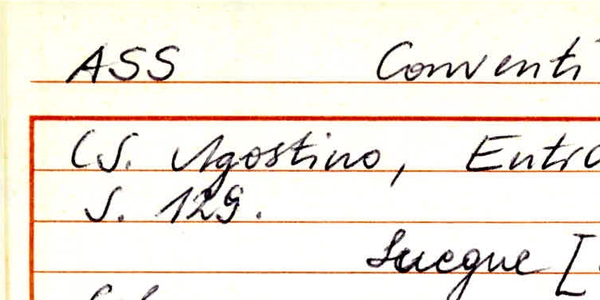 ASS Conventi
(S. Agostino, Entra
S. 129.
Lucque [